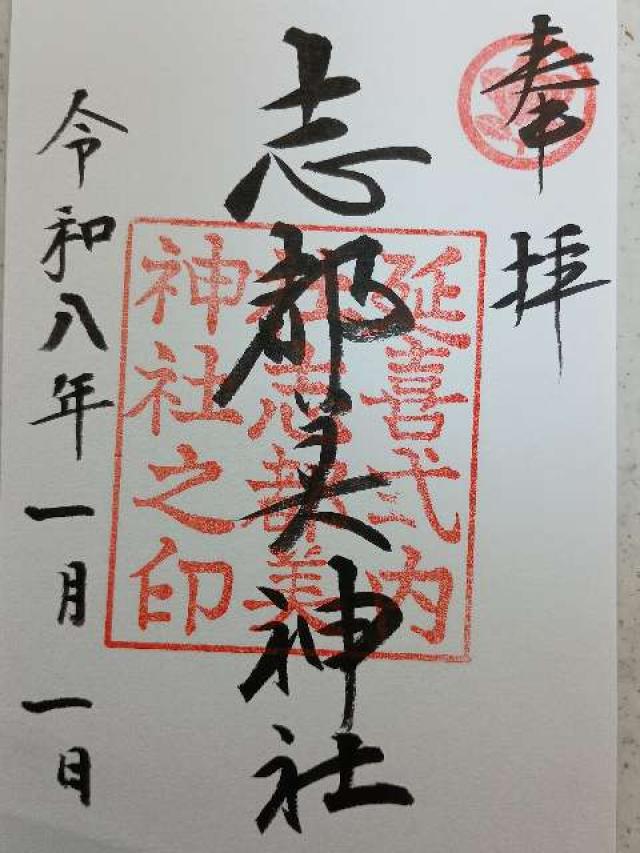 奉拝
志都美神社
延喜式内
社志都美
神社之印
令和八年一月一日